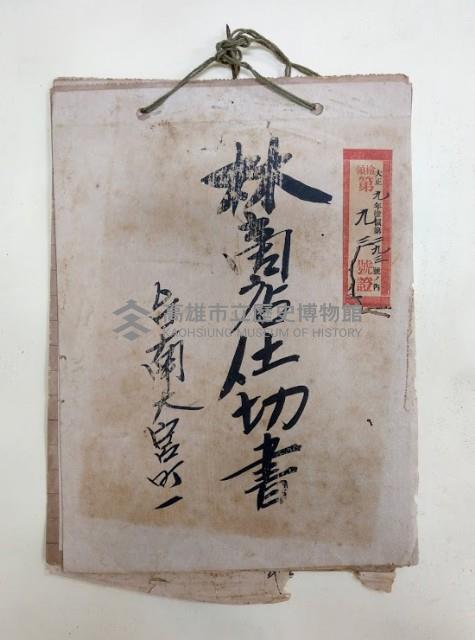 大正九年登簿第二九三號ノ內
檢領
第九三號證
林商店仕切書
台南大宮町一
高雄市立歷史博物館
KAOHSIUNG MUSEUM OF HISTORY